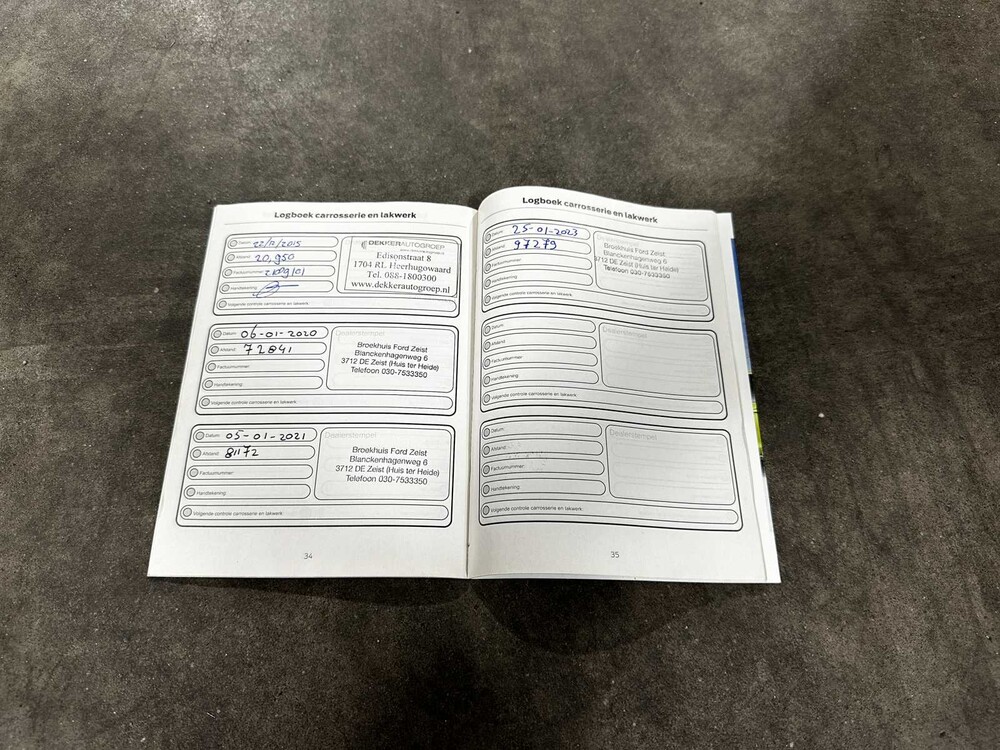 Logboek carrosserie en lakwerk
Datum: 22/12/2015
Afstand: 20.950
Factuurnummer:
Handtekening:
Volgende controle carrosserie en lakwerk:
DEKKERAUTOGROEP
Edisonstraat 8
1704 RL Heerhugowaard
Tel. 088-1800300
www.dekkerautogroep.nl
Datum: 06-01-2020
Afstand: 72841
Factuurnummer:
Handtekening:
Volgende controle carrosserie en lakwerk:
Dealerstempel
Broekhuis Ford Zeist
Blanckenhagenweg 6
3712 DE Zeist (Huis ter Heide)
Telefoon 030-7533350
Datum: 05-01-2021
Afstand: 81172
Factuurnummer:
Handtekening:
Volgende controle carrosserie en lakwerk:
Dealerstempel
Broekhuis Ford Zeist
Blanckenhagenweg 6
3712 DE Zeist (Huis ter Heide)
Telefoon 030-7533350
34
Logboek carrosserie en lakwerk
Datum: 25-01-2023
Afstand: 97279
Factuurnummer:
Handtekening:
Volgende controle carrosserie en lakwerk:
Broekhuis Ford Zeist
Blanckenhagenweg 6
3712 DE Zeist (Huis ter Heide)
Telefoon 030-7533350
Datum:
Afstand:
Factuurnummer:
Handtekening:
Volgende controle carrosserie en lakwerk:
Dealerstempel
Datum:
Afstand:
Factuurnummer:
Handtekening:
Volgende controle carrosserie en lakwerk:
Dealerstempel
35